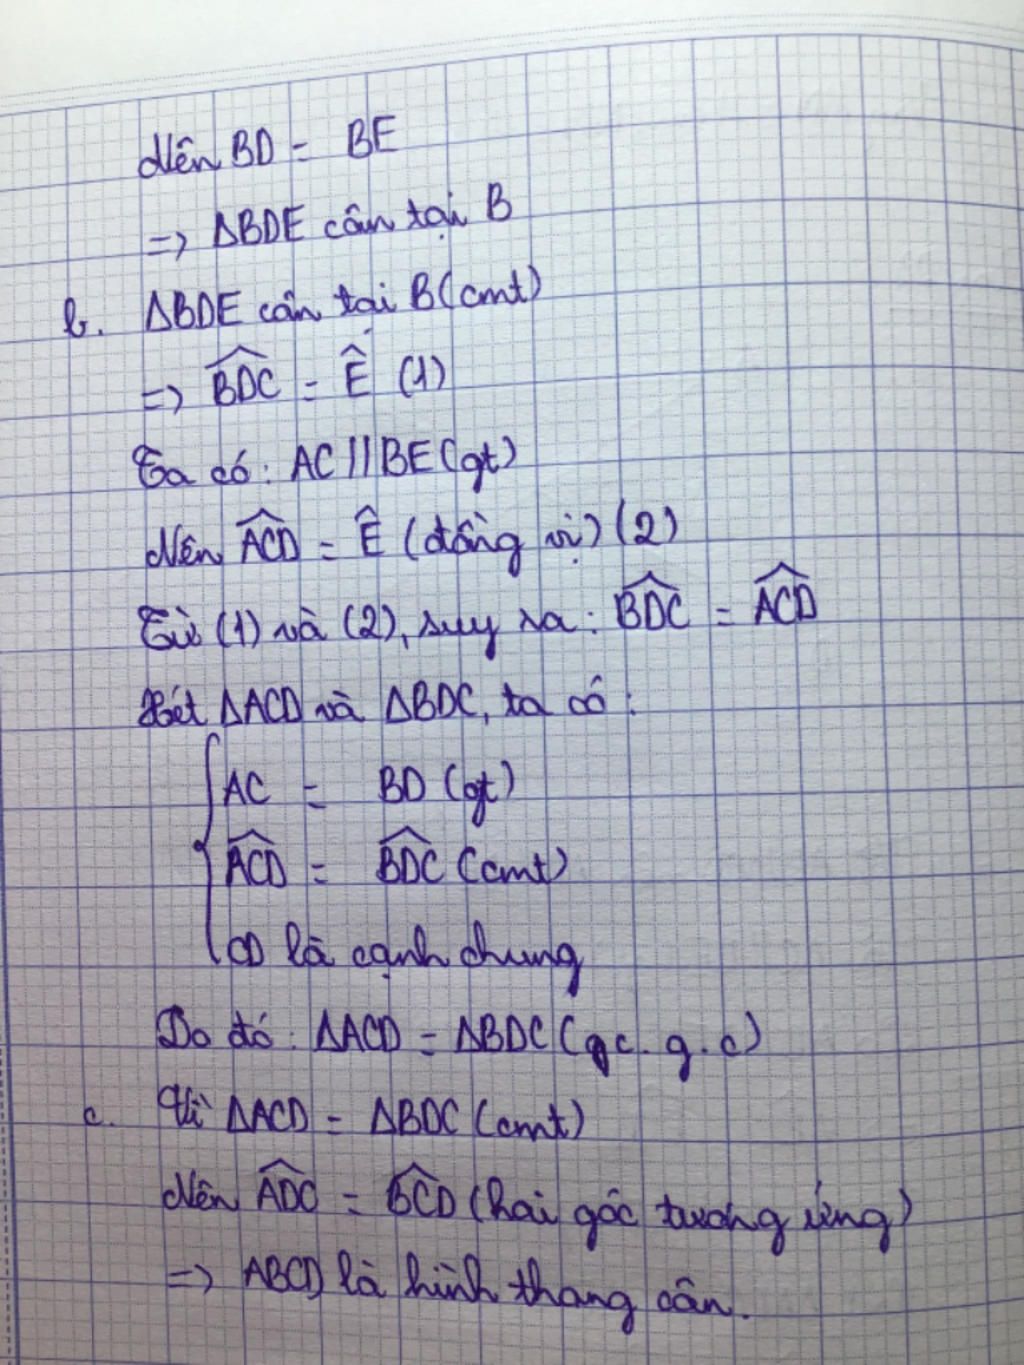 Nên BD = BE
=> ΔBDE cân tại B
b. ΔBDE cân tại B (cmt)
=> \widehat{BDC} = Ê (1)
Ta có: AC // BE (gt)
Nên \widehat{ACD} = Ê (đồng vị) (2)
Từ (1) và (2), suy ra: \widehat{BDC} = \widehat{ACD}
Xét ΔACD và ΔBDC, ta có:
AC = BD (gt)
\widehat{ACD} = \widehat{BDC} (cmt)
CD là cạnh chung
Do đó: ΔACD = ΔBDC (c.g.c)
c. Vì ΔACD = ΔBDC (cmt)
Nên \widehat{ADC} = \widehat{BCD} (hai góc tương ứng)
=> ABCD là hình thang cân.